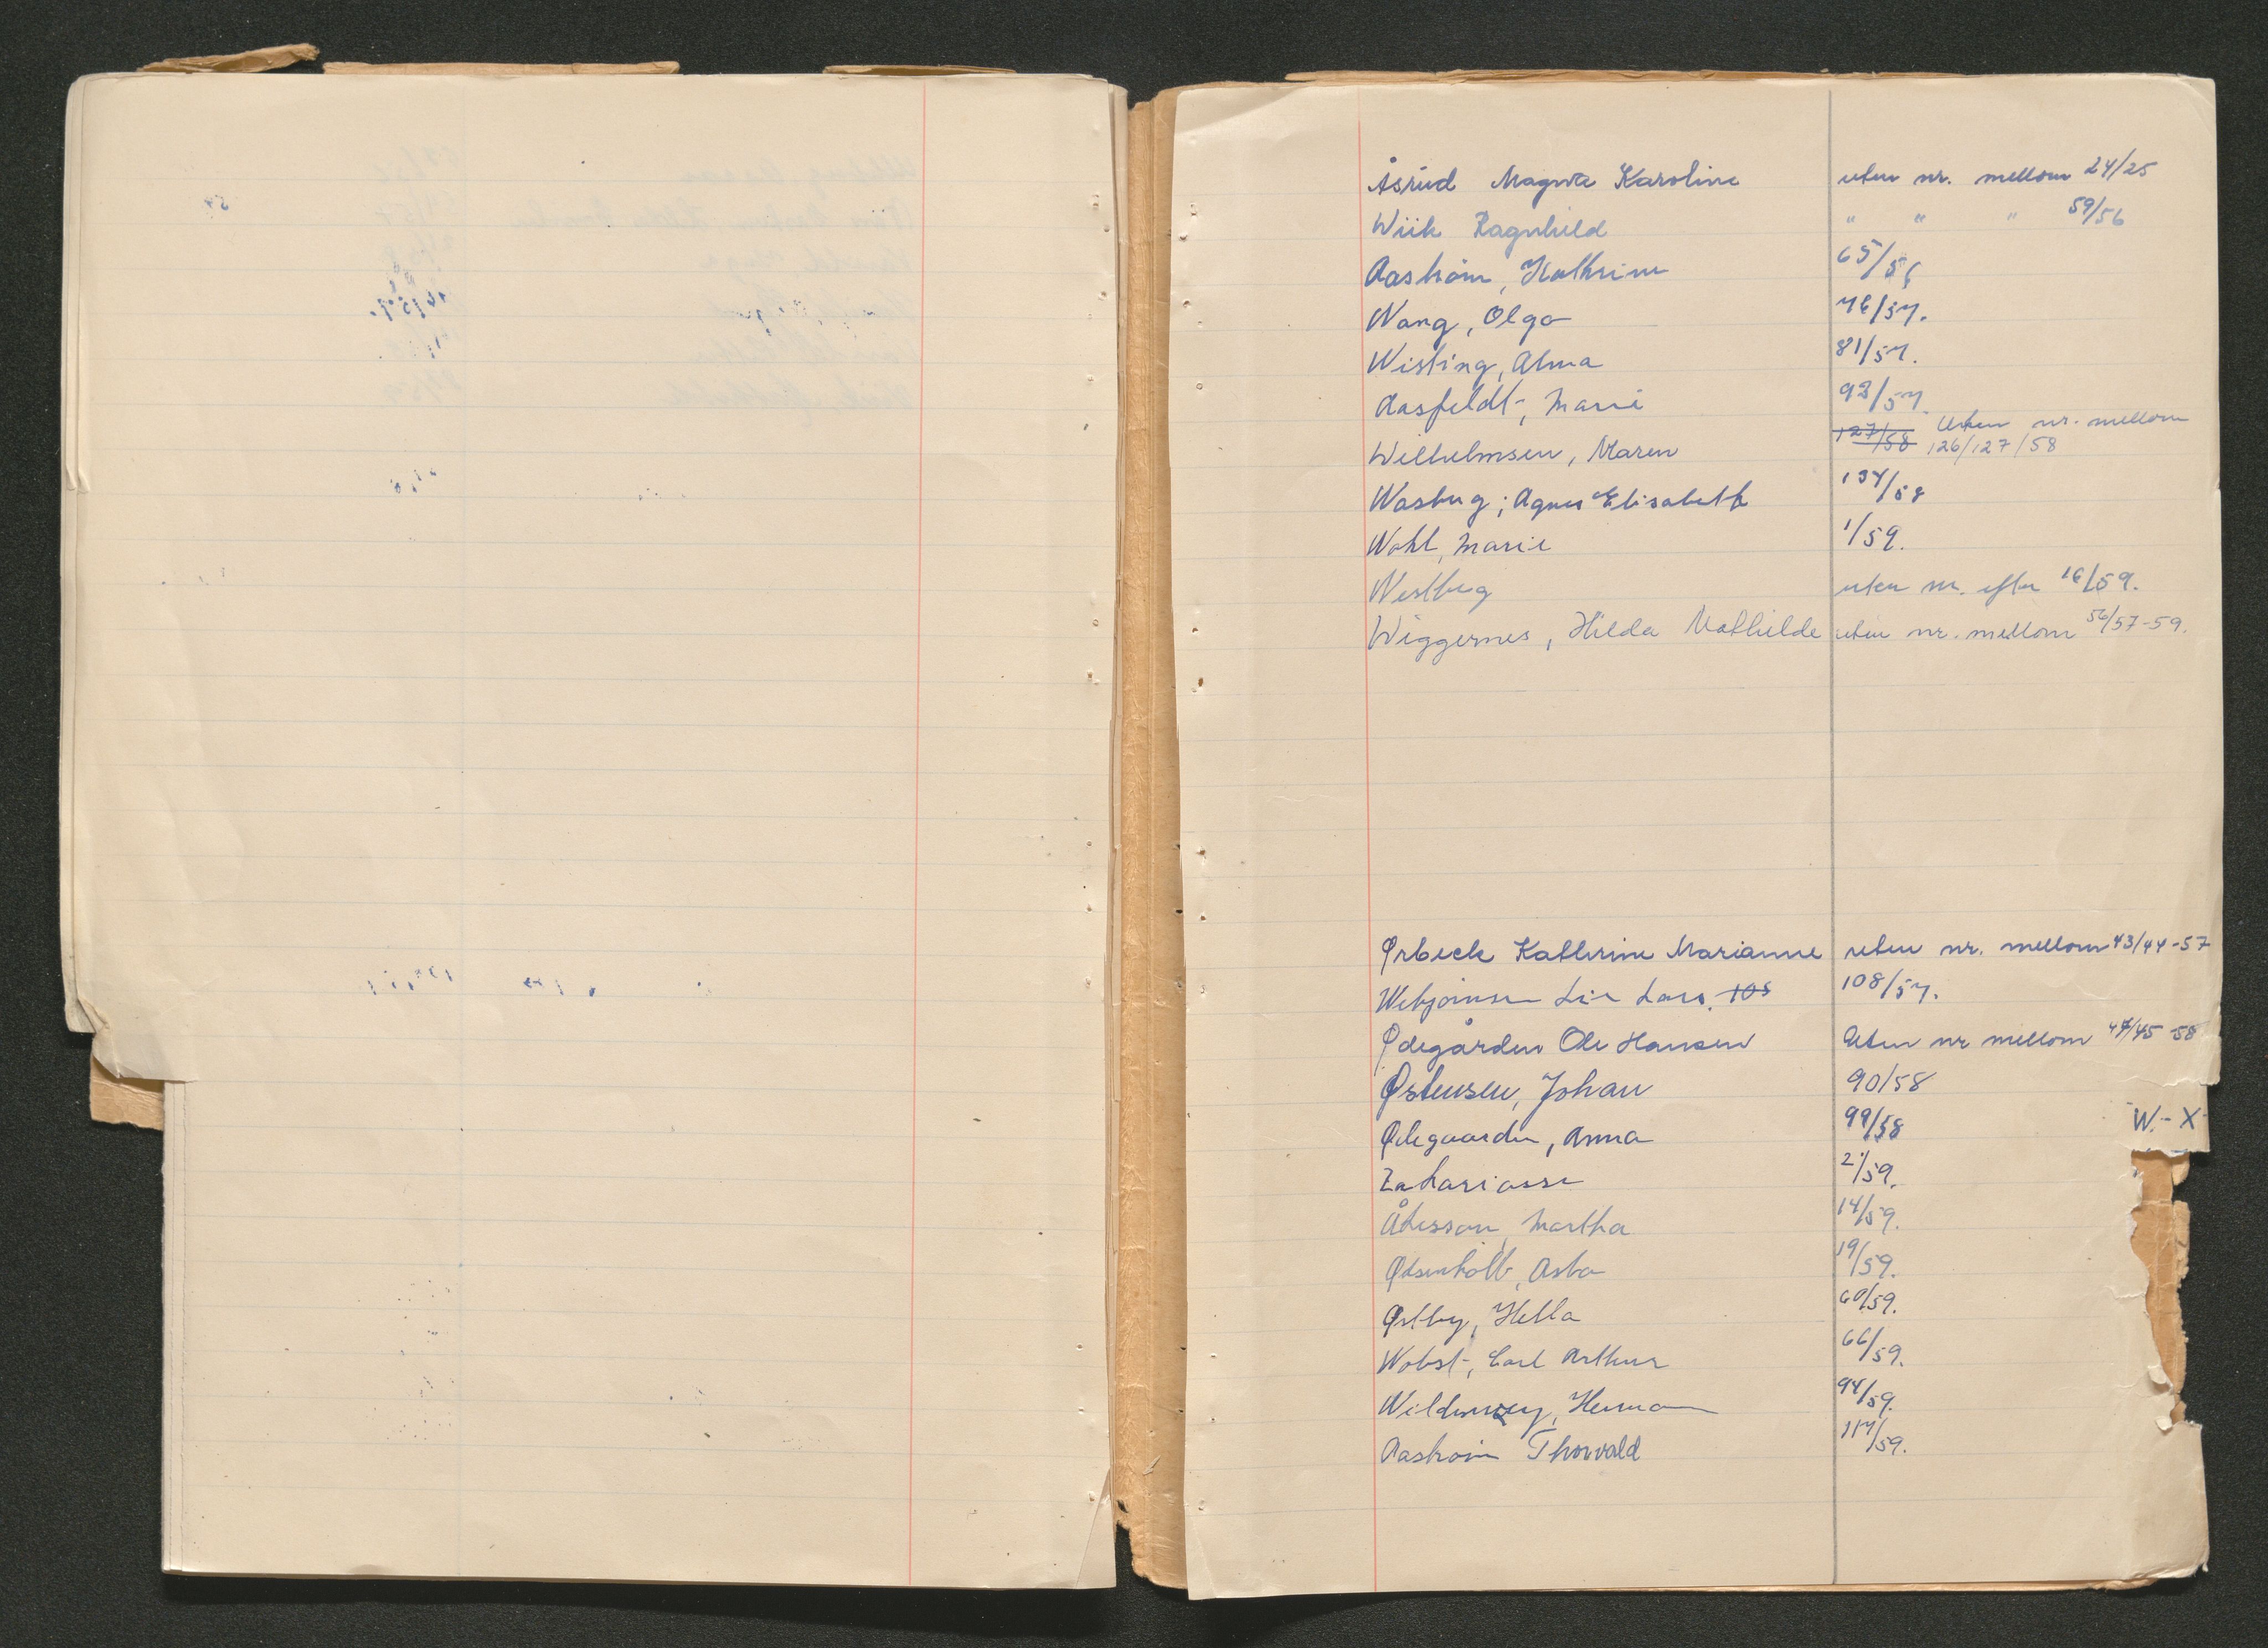 Åsrud Magna Karoline uten nr. mellom 24/25
Wiik Ragnhild " " " 59/56
Aastrøm, Kathrine 65/56
Wang, Olga 76/57.
Wisting, Alma 81/57.
Aasfeldt, Marie 93/57.
Wilhelmsen, Maren 127/58 Uten nr. mellom
126/127/58
Wasberg; Agnes Elisabeth 134/58
Wahl, Marie 1/59.
Westberg uten nr. efter 16/59.
Wiggernes, Hilda Mathilde uten nr. mellom 56/57-59.
Ørbeck Kathrine Marianne uten nr. mellom 43/44-57
Lars. 108/57.
Ødegården Ole Hansen Uten nr mellom 44/45-58
Østensen, Johan 90/58
Ødegaarden, Anna 99/58
W.-X
Zakariassen 2/59.
Åkesson, Martha 14/59.
Asta 19/59.
Østby, Hella 60/59.
Wobst, Carl Arthur 66/59.
Wildenvey, Herman 94/59.
Aastrøm Thorvald 117/59.